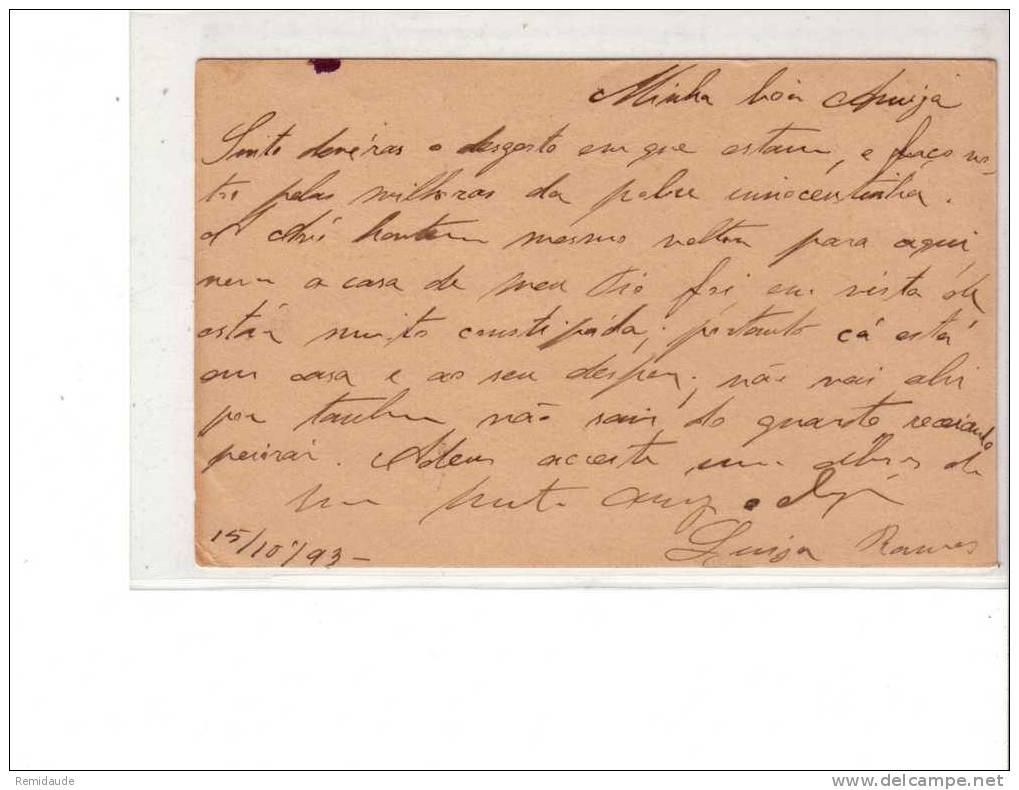 Minha boa Amiga
Sinto devéras o desgosto em que estam, e faço vo-
tos pelas milhoras da pobre innocentinha.
A Avó hontem mesmo voltou para aqui,
nem a casa de meu tio foi em vista de
estár muito constipáda; portanto cá está
em casa e ao seu dispôr; não vai ahi
por tambem não sair do quarto receiando
peiorar. Adeus acceite um de
Luiza Ramos
15/10/93-
Remidaude
www.delcampe.net